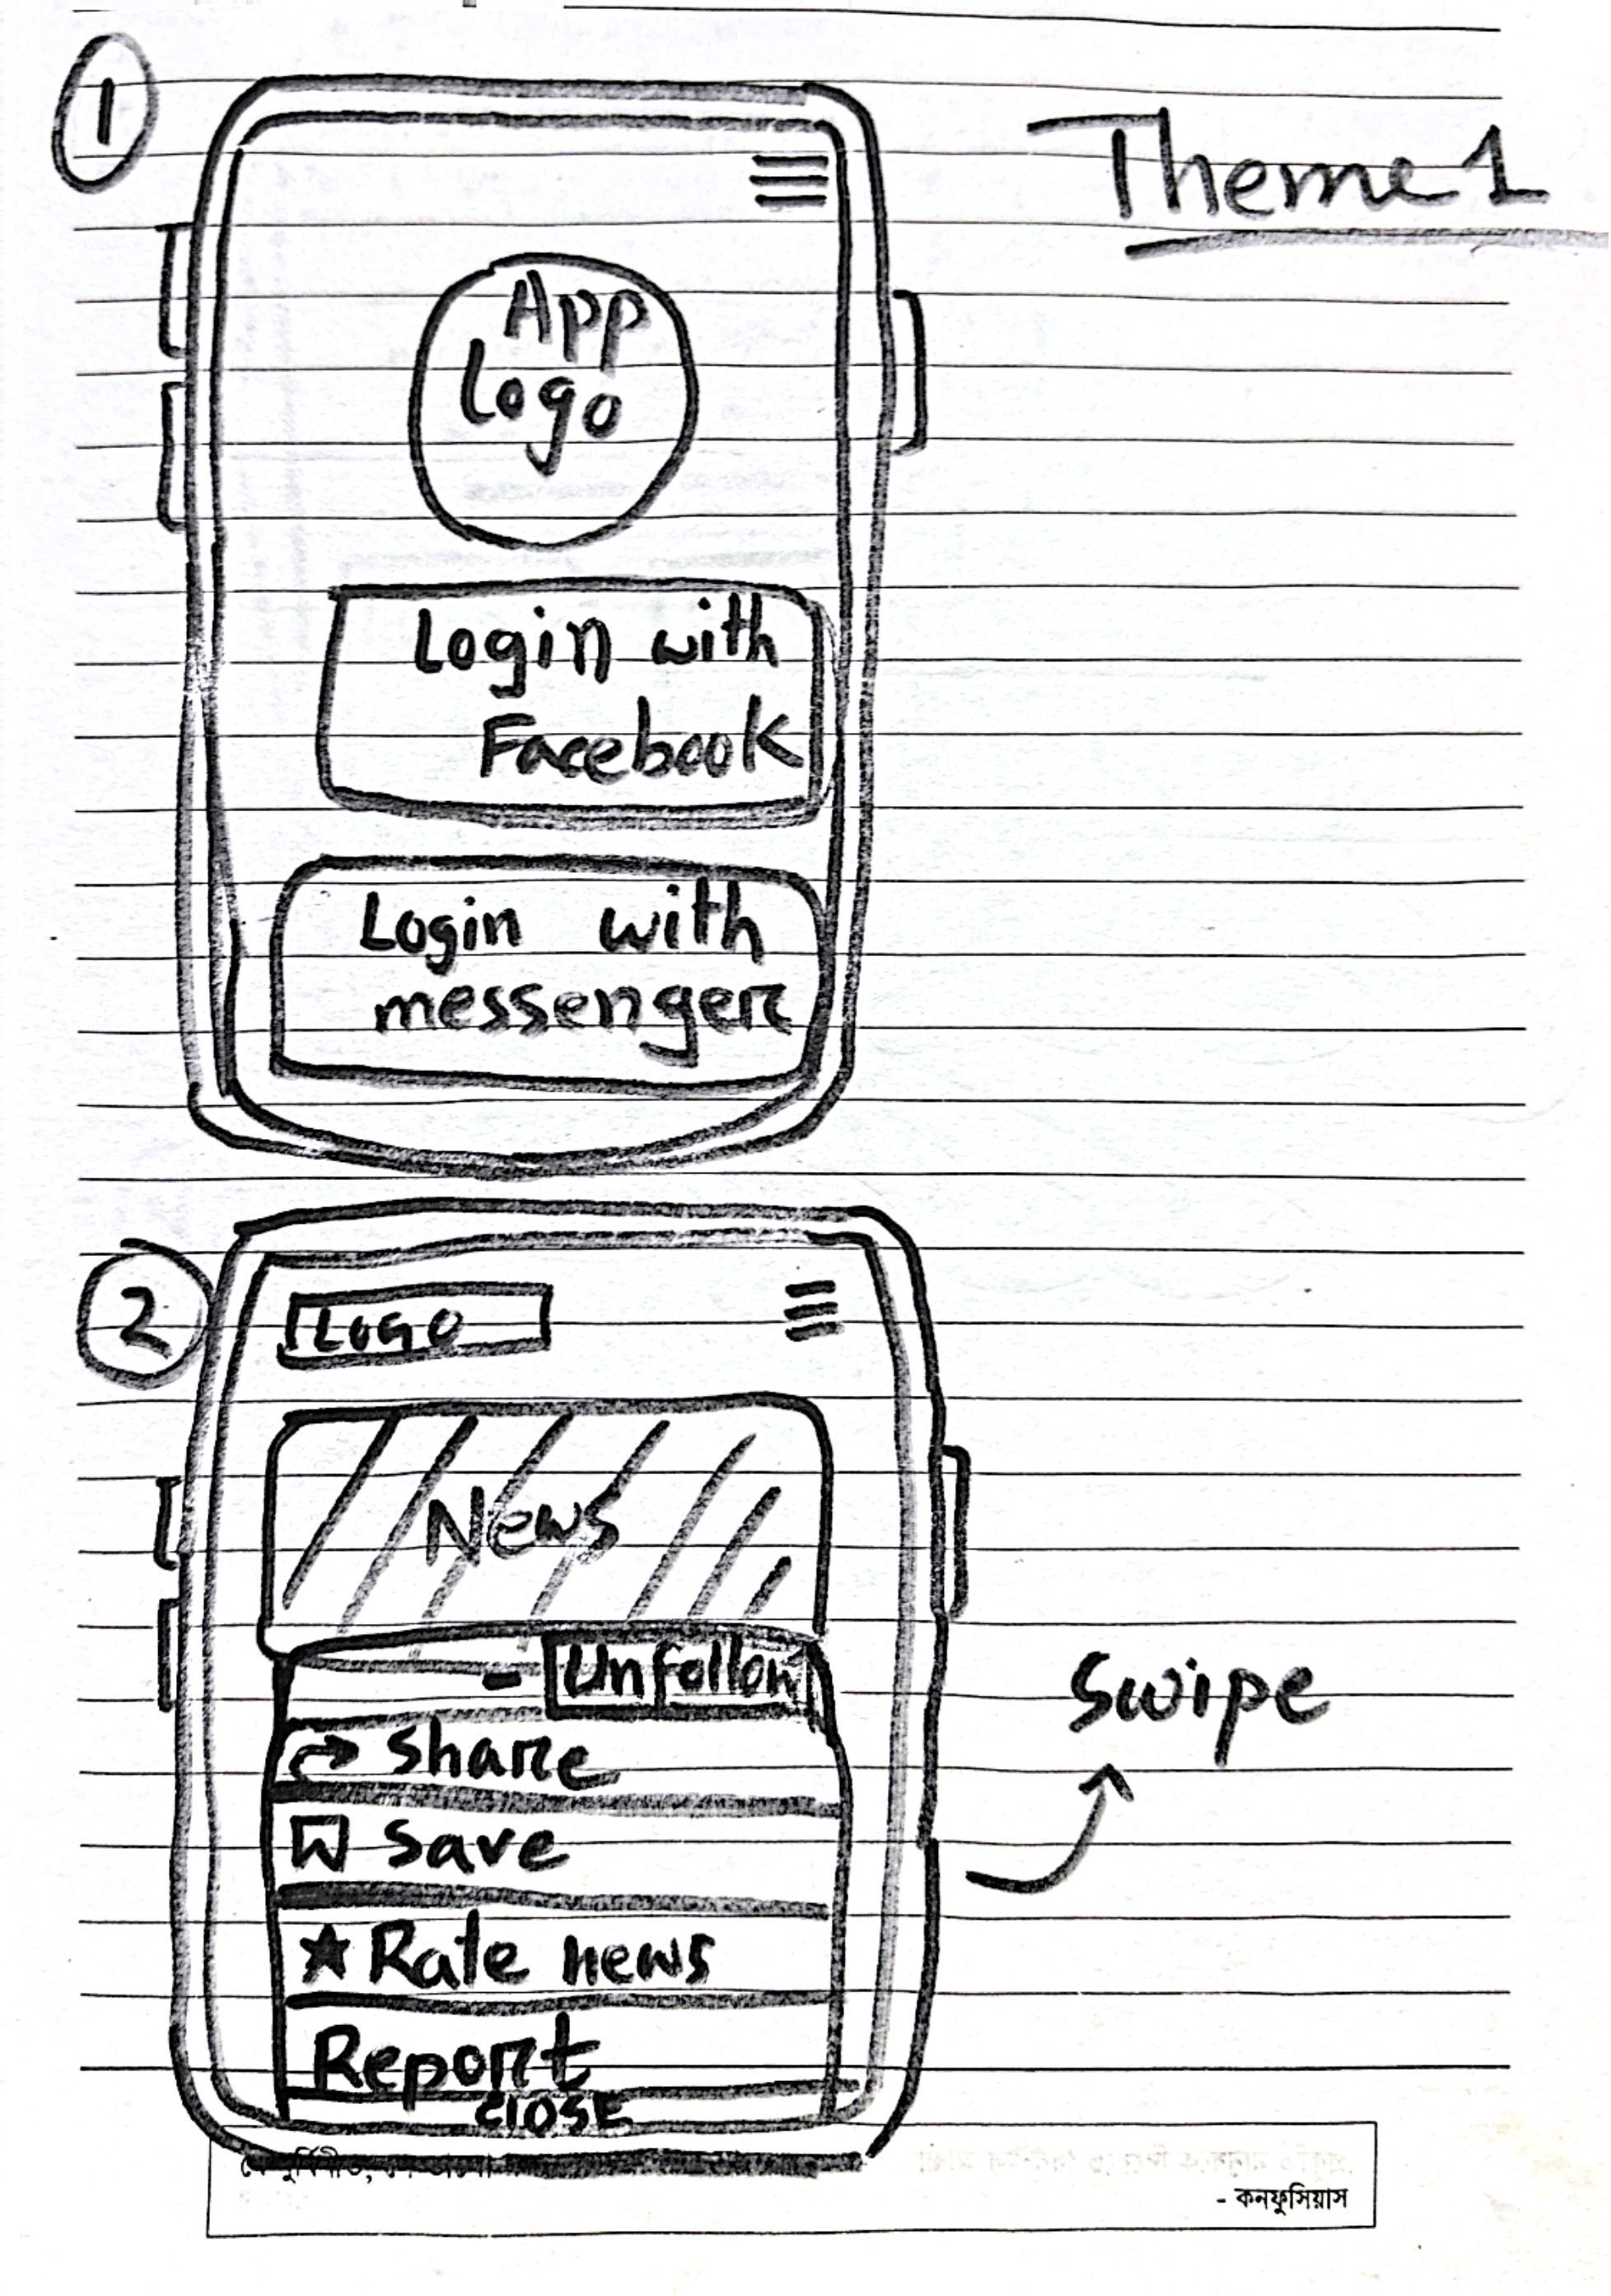 1
Theme 1
App
Logo
Login with
Facebook
Login with
messenger
2
LOGO
News
- Unfollow
Share
Save
★ Rate news
Report
ClOSE
Swipe
- কনফুসিয়াস